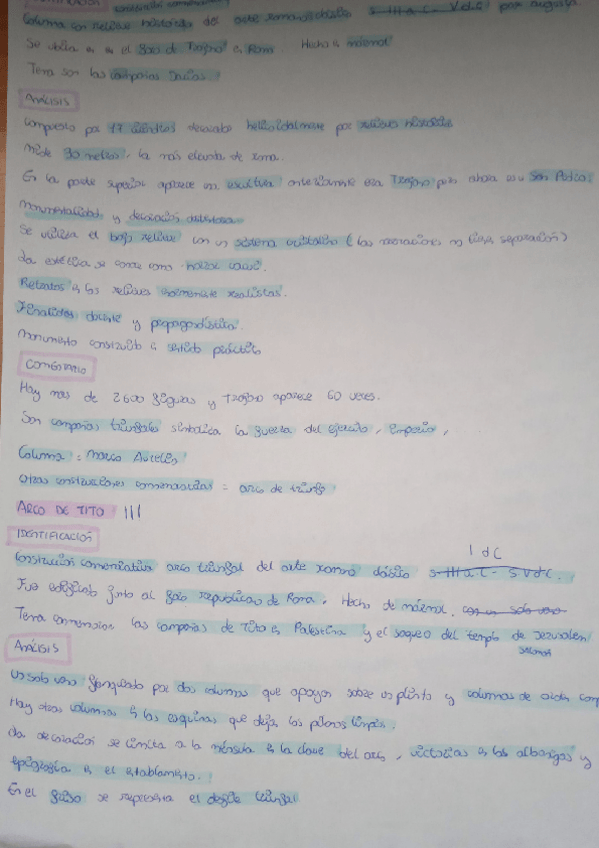 Columna con relieve histórico del arte romano clásico s. III a.C - V d.C por Augusta.
Se ubica en el Foro de Trajano en Roma Hecha en mármol
Tema son las campañas Dacias.
ANÁLISIS
Compuesto por 17 decorado helicoidalmente por relieves históricos
Mide 30 metros, la más elevada de roma.
En la parte superior aparece una escultura anteriormente era Trajano pero ahora San Pedro.
Monumentalidad y decoración
Se utiliza el bajo relieve con un sistema continuo (las narraciones no tienen separación)
La estética se conoce como horror vacui.
Retratos en los relieves realistas.
Finalidades docente y propagandística.
Monumento construido sentido práctico
COMENTARIO
Hay mas de 2600 figuras y Trajano aparece 60 veces.
Son campañas triunfales simboliza la guerra del ejército, Imperio,
Columna: Marco Aurelio
Otras construcciones conmemorativas = arco de triunfo
ARCO DE TITO |||
IDENTIFICACIÓN
I dC
Construcción conmemorativa arco triunfal del arte romano clásico s. III a.C - s. V d.C.
Fue edificado junto al foro republicano de Roma. Hecho de mármol. con un solo vano
Tema conmemora las campañas de Tito en Palestina y el saqueo del templo de Jerusalén
ANÁLISIS
Un solo vano flanqueado por dos columnas que apoyan sobre un plinto y columnas de orden
Hay otras columnas en las esquinas que dejan los limpios.
La decoración se limita a la ménsula en la clave del arco, victorias en las albanegas y
epigrafía en el entablamento.
En el friso se representa el desfile triunfal